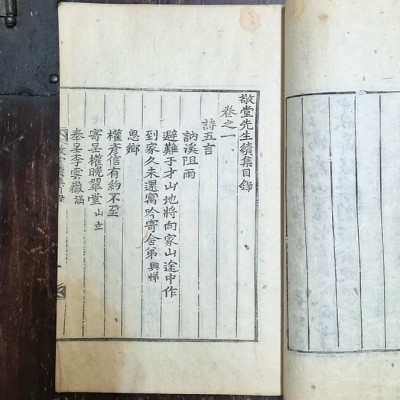 敬堂先生續集目錄
卷之一
詩五言
訥溪阻雨
避難于才山地將向家山途中作
到家久未還寓吟寄舍弟興悌
思鄉
權彥信有約不至
寄呈權晩翠堂山立
奉呈李雲嶽涵